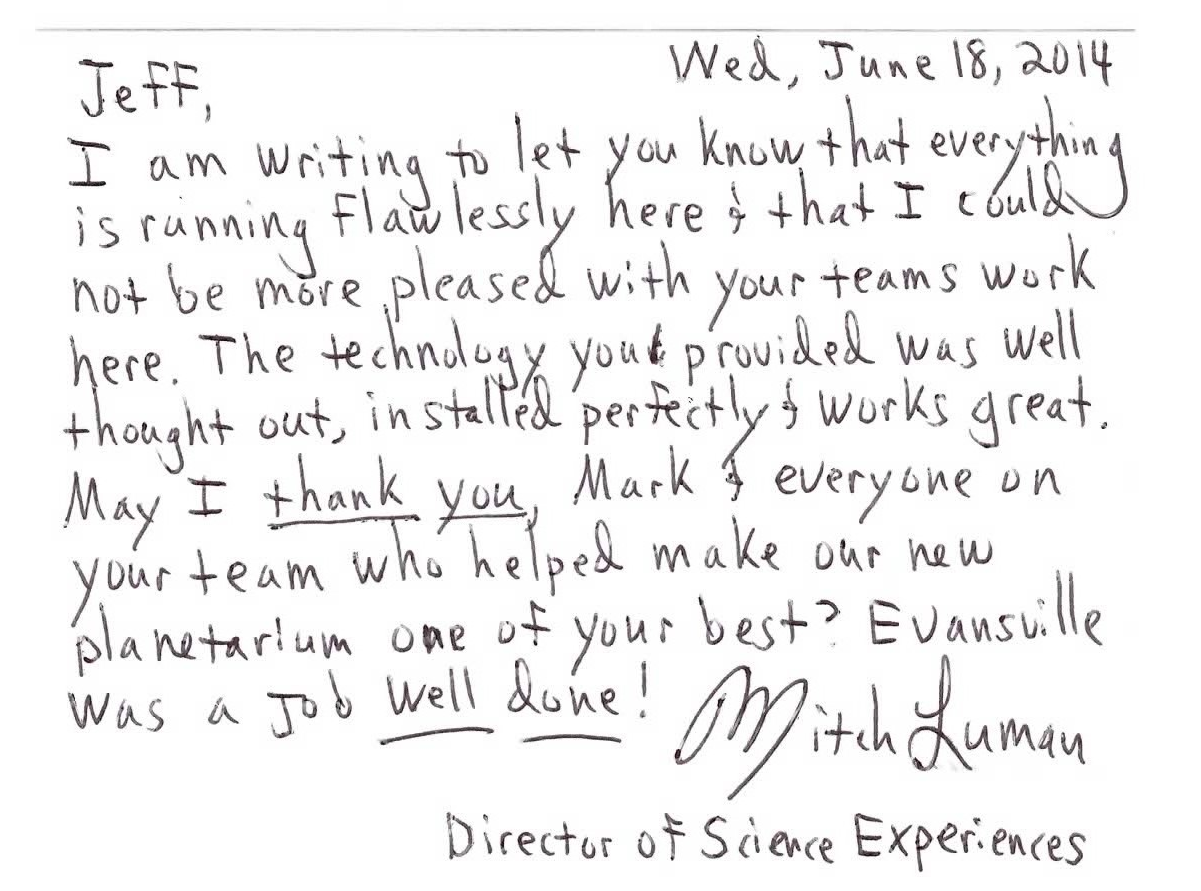 Wed, June 18, 2014
Jeff,
I am writing to let you know that everything
is running flawlessly here & that I could
not be more pleased with your teams work
here. The technology you provided was well
thought out, installed perfectly & works great.
May I thank you, Mark & everyone on
your team who helped make our new
planetarium one of your best? Evansville
was a job well done! Mitch Luman
Director of Science Experiences